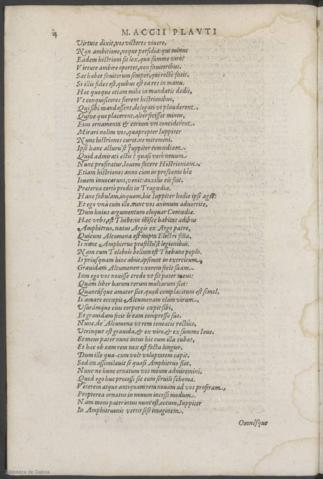 M. ACCII PLAVTI
Virtute dixit, vos victores vivere,
Non ambitione, neque perfidia: qui minus
Eadem histrioni sit lex, quæ summo viro?
Virtute ambire oportet, non favitoribus.
Sat habet favitorum semper, qui recte facit,
Si illis fides est, quibus est ea res in manu.
Hoc quoque etiam mihi in mandatis dedit,
Ut conquisitores fierent histrionibus,
Qui sibi mandassent, delegati ut plauderent,
Quive quo placeret alter fecisset minus,
Eius ornamenta & corium uti conciderent.
Mirari nolim vos, quapropter Iuppiter
Nunc histriones curet. ne miremini.
Ipse hanc acturu'st Iuppiter comoediam.
Quid admirati estis? quasi vero novum
Nunc proferatur, Iovem facere Histrioniam.
Etiam histriones anno cum in proscenio hic
Iovem invocarunt, venit: auxilio eis fuit.
Præterea certo prodit in Tragœdia.
Hanc fabulam, inquam, hic Iuppiter hodie ipse aget:
Et ego una cum illo. nunc vos animum advortite,
Dum huius argumentum eloquar Comœdiæ.
Hæc urbs, est Thebæ: in illisce habitat ædibus
Amphitruo, natus Argis ex Argo patre,
Quicum Alcumena est nupta Electri filia,
Is nunc Amphitruo præfectu'st legionibus.
Nam cum Telobois bellum est Thebano poplo.
Is priusquam hinc abiit, ipsemet in exercitum,
Gravidam Alcumenam uxorem fecit suam.
Nam ego vos novisse credo ut sit pater meus:
Quam liber harum rerum multarum siet:
Quantusque amator siet, quod complacitum est semel,
Is amare occœpit Alcumenam clam virum,
Usuramque eius corporis cepit sibi,
Et gravidam fecit is eam compressu suo.
Nunc de Alcumena ut rem teneatis rectius,
Utrinque est gravida, & ex viro, & ex summo Iove.
Et meus pater nunc intus hic cum illa cubat,
Et hæc ob eam rem nox est facta longior,
Dum illa quacum vult voluptatem capit.
Sed ita assimilavit se quasi Amphitruo siet.
Nunc ne hunc ornatum vos meum admiremini,
Quod ego huc processi sic cum servili schema.
Veterem atque antiquam rem novam ad vos proferam,
Propterea ornatus in novum incessi modum.
Nam meus pater intus nunc est, eccum, Iuppiter
In Amphitruonis vertit sese imaginem,
Omnesque